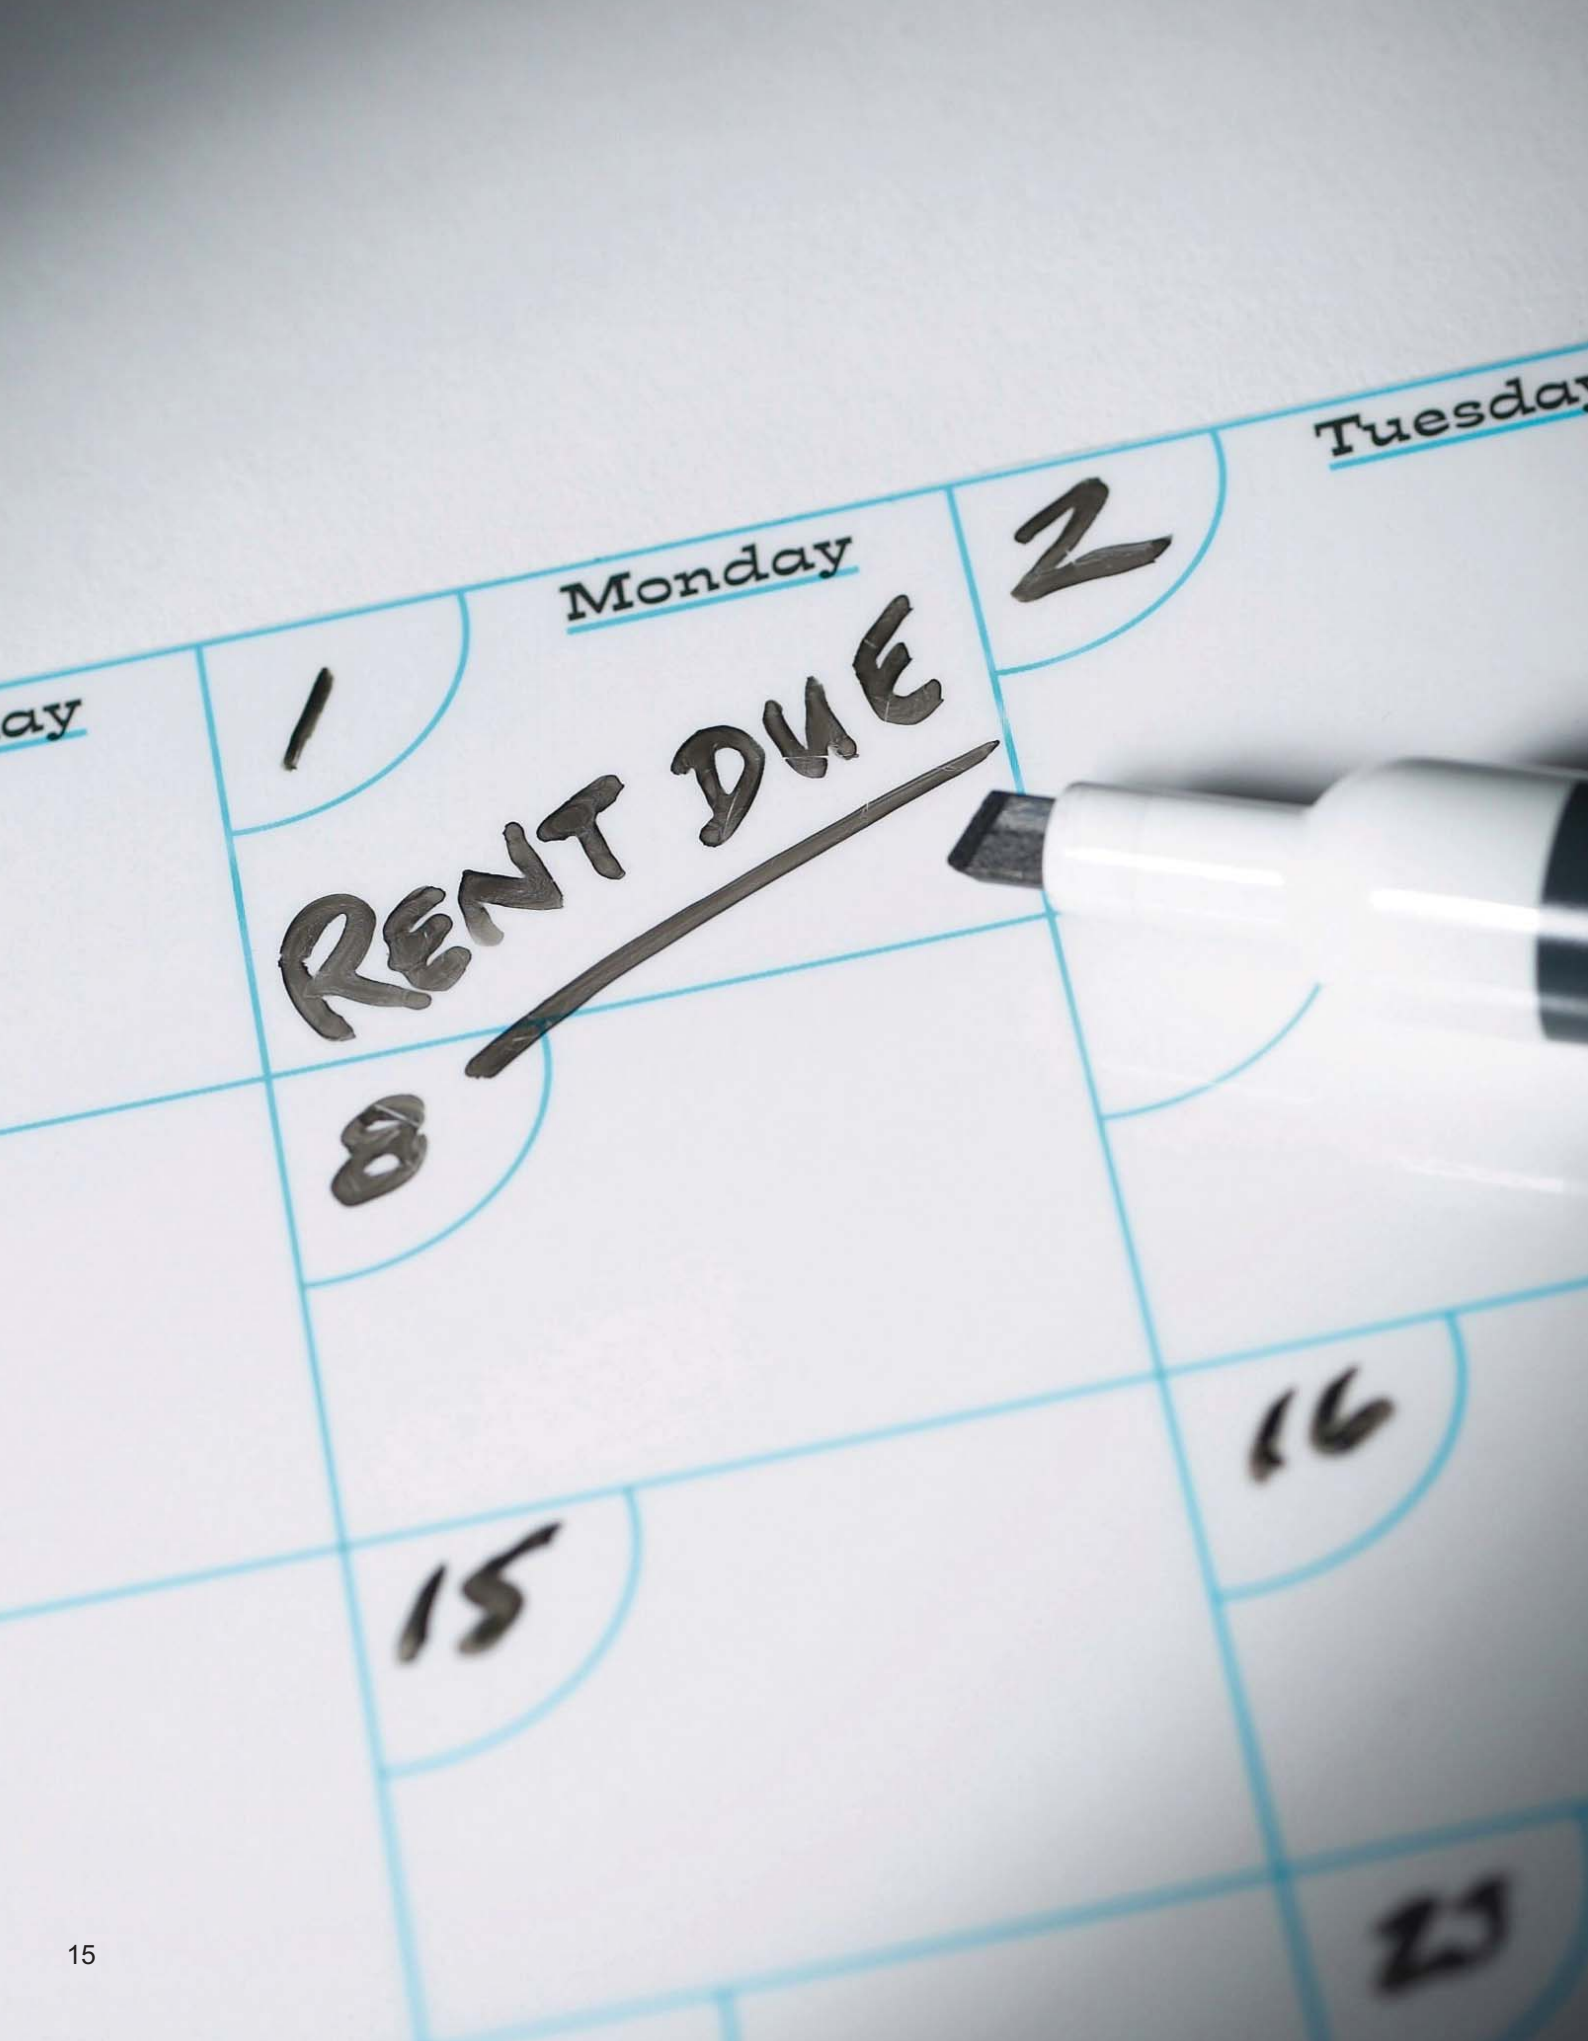 Tuesday
Monday
2
1
ay
RENT DUE
8
16
15
23
15